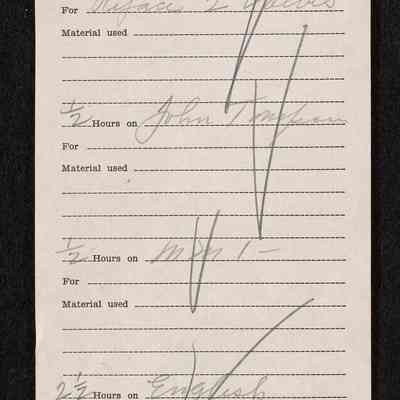 For Reface 2 Valves
Material used
½ Hours on John Tompson
For
Material used
½ Hours on M M 1 -
For
Material used
2½ Hours on English